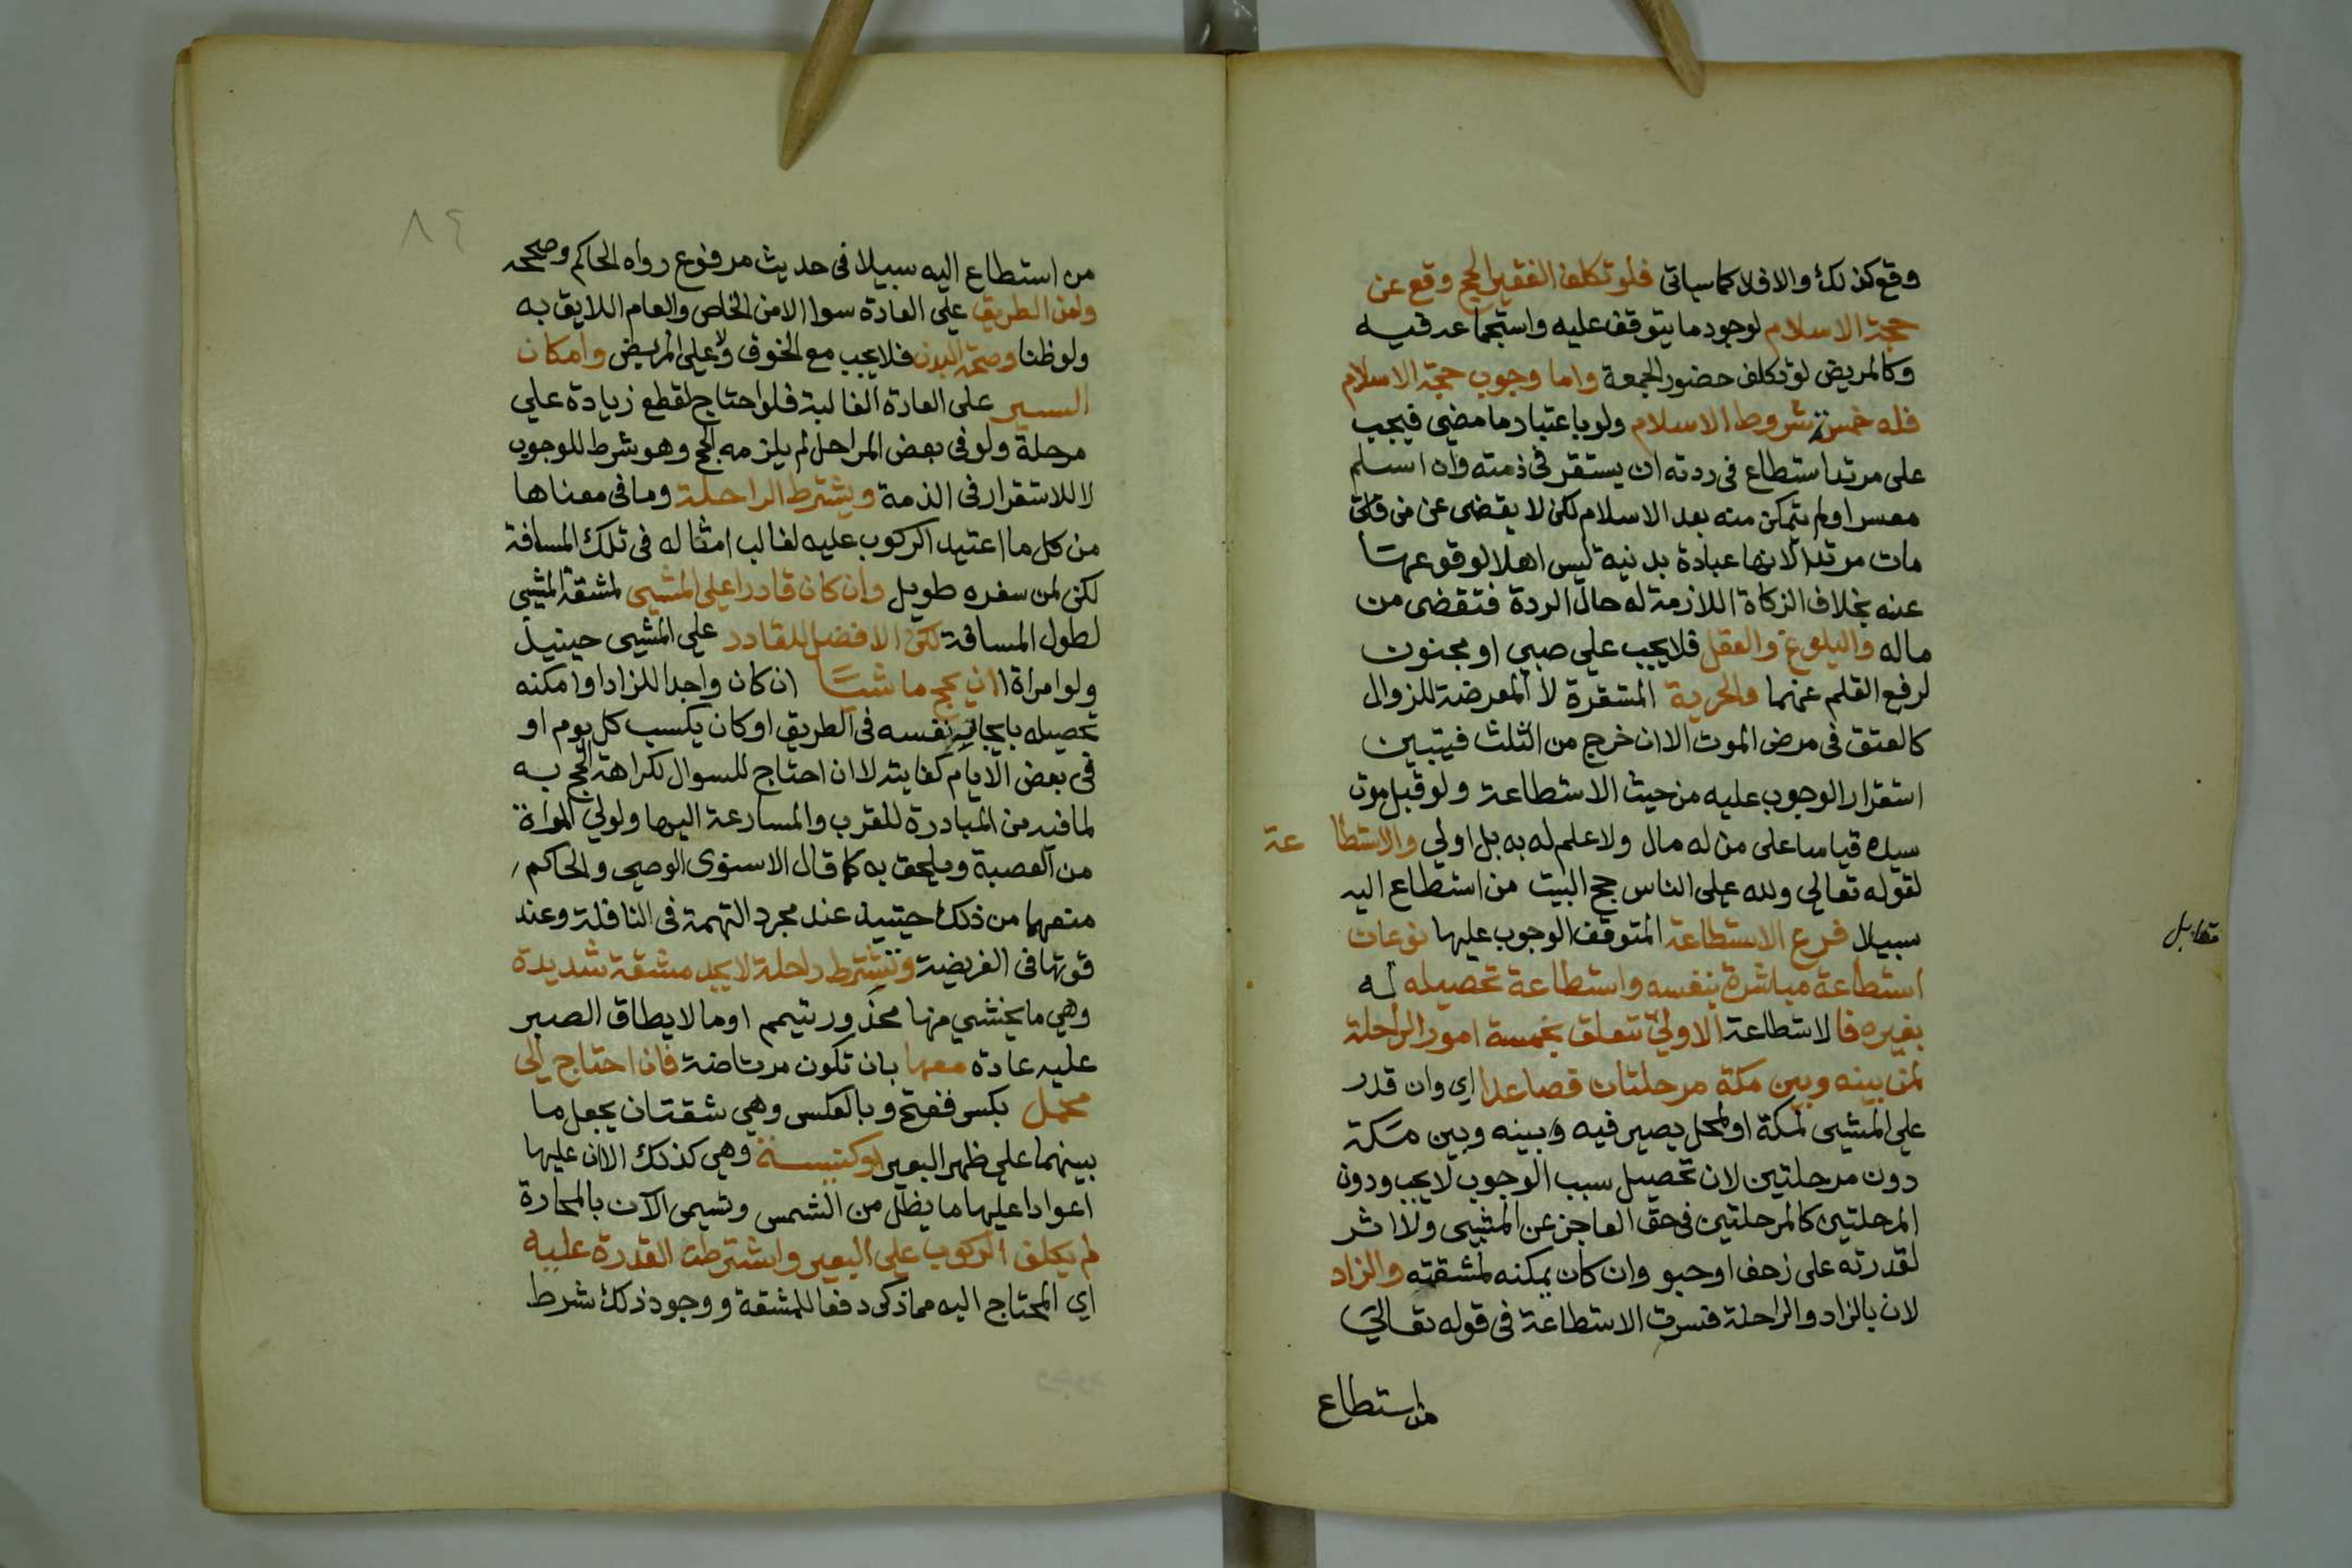 وقع كذلك والا فلا كما سياتي فلو تكلف الفقير الحج وقع عن
حجة الاسلام لوجود ما يتوقف عليه واستجماعه فيه
وكالمريض لو تكلف حضور الجمعة واما وجوب حجة الاسلام
فله خمسة شروط الاسلام ولو باعتبار ما مضي فيجب
على مرتد استطاع في ردته ان يستقر في ذمته وان اسلم
معسرا ولم يتمكن منه بعد الاسلام لكن لا يقضى عن من
مات مرتدا لانها عبادة بدنية ليس اهلا لوقوعها
عنه بخلاف الزكاة اللازمة له حال الردة فتقضى من
ماله والبلوغ والعقل فلا يجب على صبي او مجنون
لرفع القلم عنهما والحرية المستقرة لا المعرضة للزوال
كالعتق في مرض الموت الا ان خرج من الثلث فيتبين
استقرار الوجوب عليه من حيث الاستطاعة ولو قبل موت
سيده قياسا على من له مال ولا علم له به بل اولي والاستطاعة
لقوله تعالى ولله على الناس حج البيت من استطاع اليه
سبيلا فرع الاستطاعة المتوقف الوجوب عليها نوعان
استطاعة مباشرة بنفسه واستطاعة تحصيله له
بغيره فالاستطاعة الاولى تتعلق بخمسة امور الراحلة
لمن بينه وبين مكة مرحلتان فصاعدا اي وان قدر
على المشي لمكة او لمحل يصير فيه وبينه وبين مكة
دون مرحلتين لان تحصيل سبب الوجوب لا يجب ودون
المرحلتين كالمرحلتين في حق العاجز عن المشي ولا اثر
لقدرته على زحف او حبو وان كان يمكنه لمشقته والزاد
لان بالزاد والراحلة فسرت الاستطاعة في قوله تعالي
من استطاع
مقابل
٨٤
من استطاع اليه سبيلا في حديث مرفوع رواه الحاكم وصححه
وامن الطريق على العادة سوا الامن الخاص والعام اللايق به
ولو ظنا وصحة البدن فلا يجب مع الخوف ولا على المريض وامكان
السير على العادة الغالبة فلو احتاج لقطع زيادة علي
مرحلة ولو في بعض المراحل لم يلزمه الحج وهو شرط للوجوب
لا للاستقرار في الذمة ويشترط الراحلة وما في معناها
من كل ما اعتيد الركوب عليه لغالب امثاله في تلك المسافة
لكن لمن سفره طويل وان كان قادرا على المشي لمشقة المشي
لطول المسافة لكن الافضل للقادر على المشي حينيذ
ولو امراة ان يحج ماشيا ان كان واجد اللزاد او امكنه
تحصيله بايجار نفسه في الطريق او كان يكسب كل يوم او
في بعض الايام كفايته لا ان احتاج للسوال لكراهة الحج به
لما فيه من المبادرة للقرب والمسارعة اليها ولولي المراة
من العصبة ويلحق به كما قال الاسنوى الوصي والحاكم
منعها من ذلك حينيذ عند مجرد التهمة في النافلة وعند
قوتها في الفريضة وتشترط راحلة لا يجد مشقة شديدة
وهي ما يخشي منها محذور تيمم او ما لا يطاق الصبر
عليه عادة معها بان تكون مرتاضة فان احتاج الى
محمل بكسر ففتح وبالعكس وهي شقتان يجعل ما
بينهما على ظهر البعير او كنيسة وهي كذلك الا ان عليها
اعوادا عليها ما يظل من الشمس وتسمى الآن بالمحارة
لم يكلف الركوب على البعير واشترطت القدرة عليه
اي المحتاج اليه مما ذكر دفعا للمشقة ووجود ذلك شرط